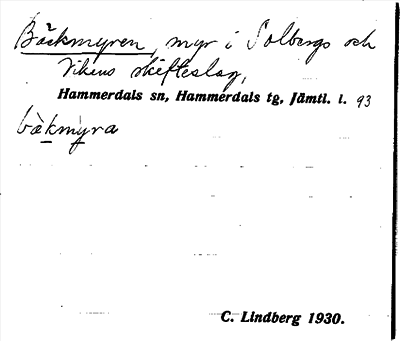 Bäckmyren, myr i Solbergs och
Vikens skifteslag,
Hammerdals sn, Hammerdals tg, Jämtl. l. 93
bàkmyra
C. Lindberg 1930.